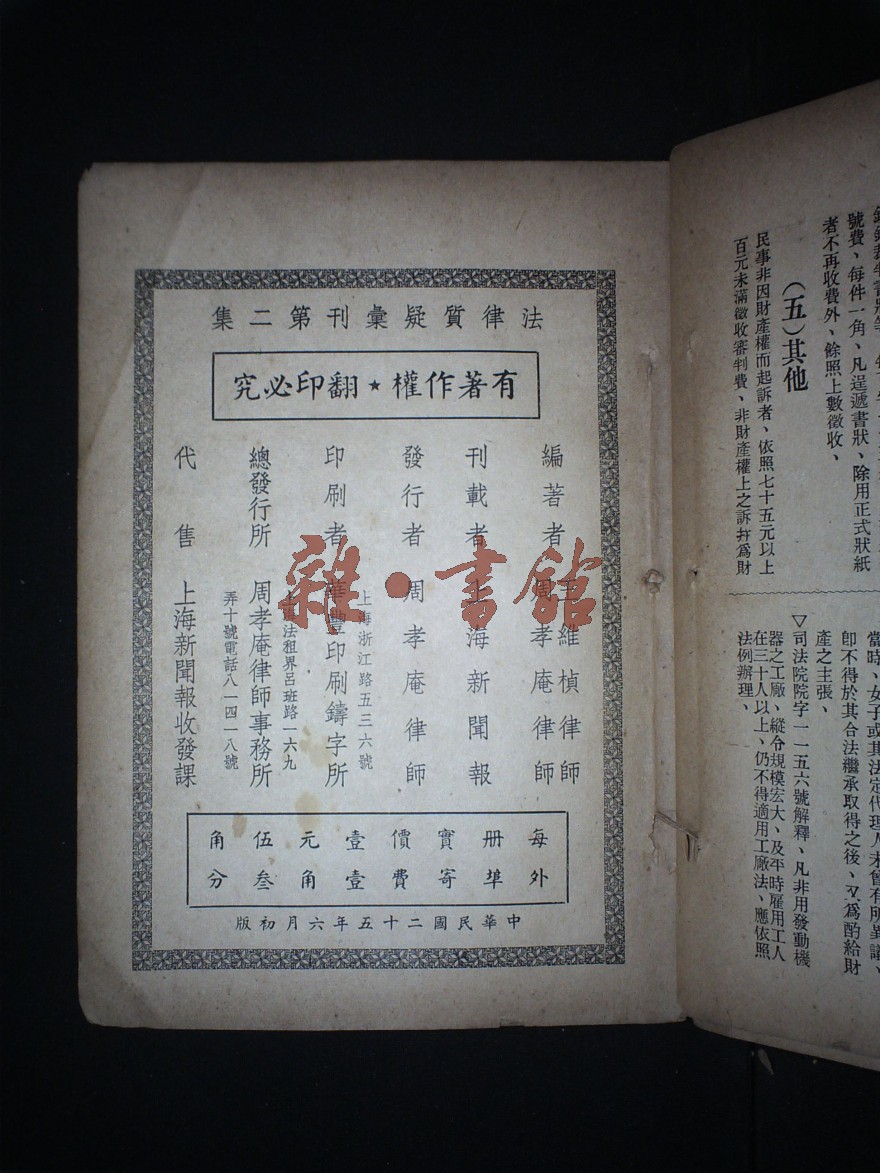 法律質疑彙刊第二集
有著作權★翻印必究
編著者
王維楨律師
周孝庵律師
刊載者 上海新聞報
發行者 周孝庵律師
上海浙江路五三六號
印刷者 華豐印刷鑄字所
上海法租界呂班路一六九
總發行所 周孝庵律師事務所
弄十號電話八一四一八號
代售 上海新聞報收發課
每册實價壹元伍角
外埠寄費壹角叁分
中華民國二十五年六月初版
雜·書館
號費、每件一角、凡逞遞書狀、除用正式狀紙
者不再收費外、餘照上數徵收、
(五)其他
民事非因財產權而起訴者、依照七十五元以上
百元未滿徵收審判費、非財產權上之訴并爲財
當時、女子或其法定代理人未曾有所異議、
卽不得於其合法繼承取得之後、又爲酌給財
產之主張、
▽司法院院字一一五六號解釋、凡非用發動機
器之工廠、縱令規模宏大、及平時雇用工人
在三十人以上、仍不得適用工廠法、應依照
法例辦理、